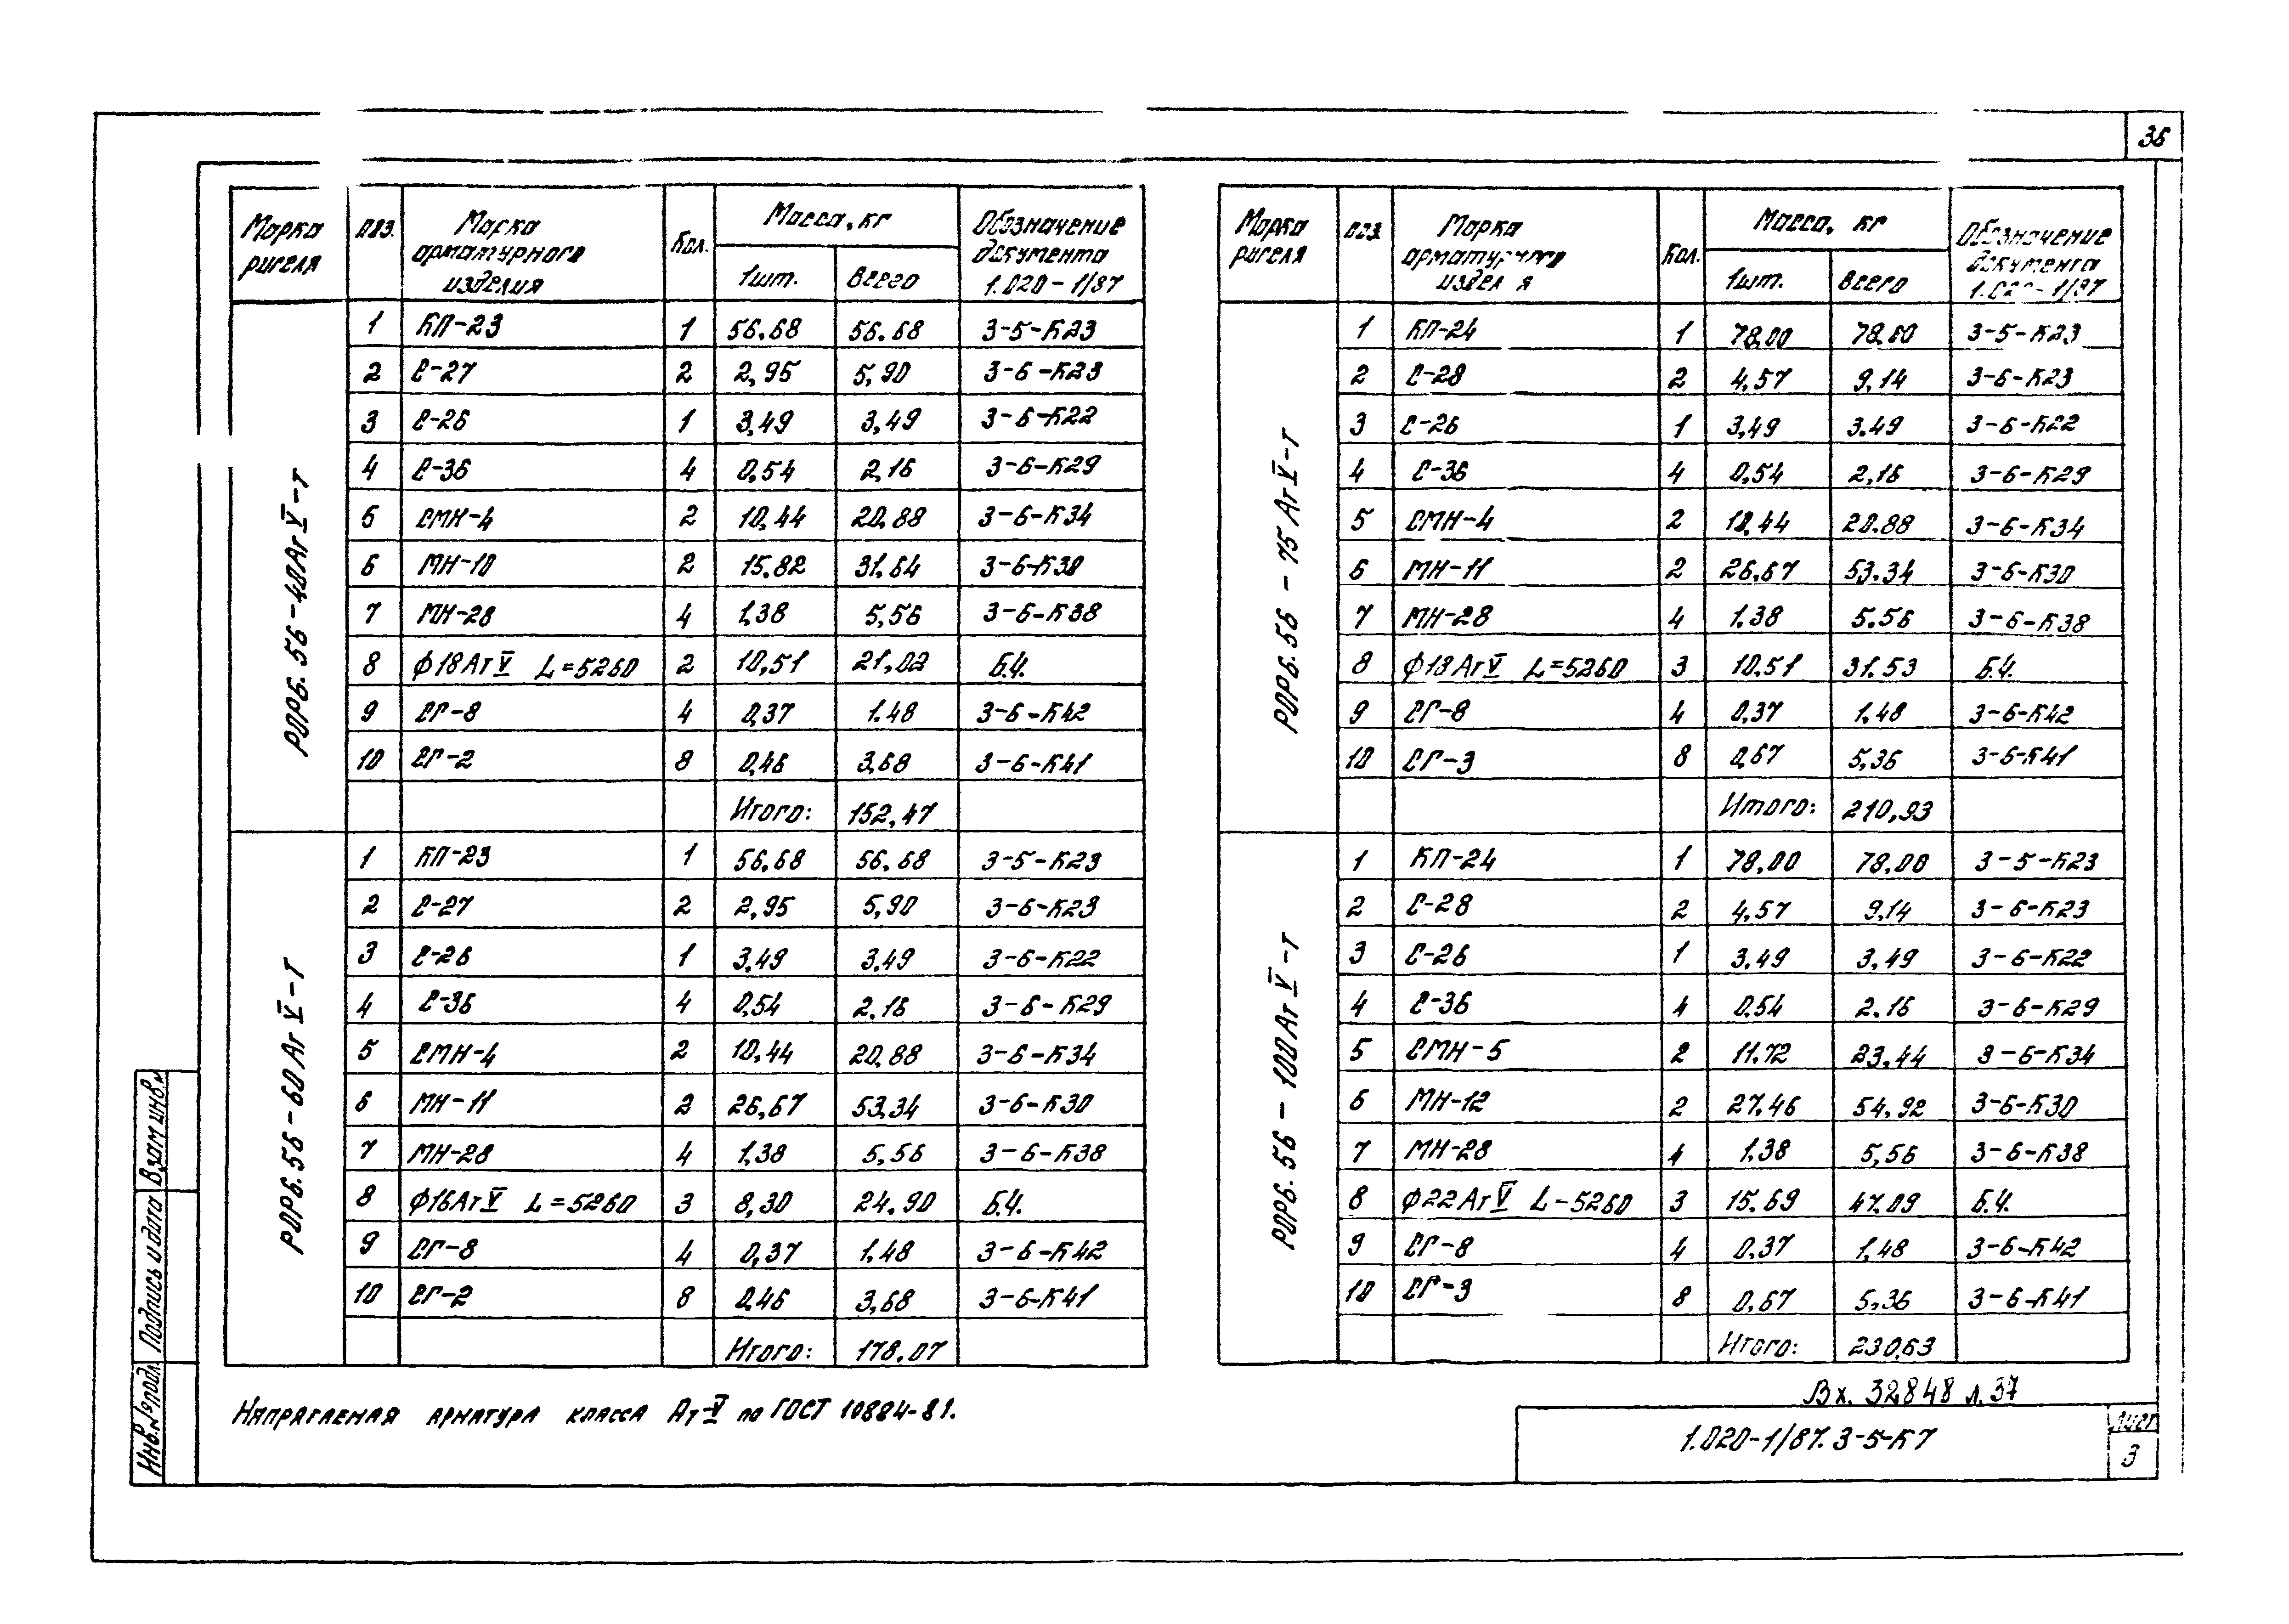 36
Марка ригеля | Поз. | Марка арматурного изделия | Кол. | Масса, кг 1шт. | всего | Обозначение документа 1.020-1/87
РОР6.56-40АтV-т
1 | КП-23 | 1 | 56,68 | 56.68 | 3-5-К23
2 | С-27 | 2 | 2,95 | 5,90 | 3-6-К23
3 | С-26 | 1 | 3,49 | 3,49 | 3-6-К22
4 | С-36 | 4 | 0,54 | 2,16 | 3-6-К29
5 | СМН-4 | 2 | 10,44 | 20,88 | 3-6-К34
6 | МН-10 | 2 | 15.82 | 31.64 | 3-6-К30
7 | МН-28 | 4 | 1,38 | 5,56 | 3-6-К38
8 | ф18АтV L=5260 | 2 | 10,51 | 21,02 | Б.Ч.
9 | СГ-8 | 4 | 0,37 | 1.48 | 3-6-К42
10 | СГ-2 | 8 | 0,46 | 3,68 | 3-6-К41
Итого: 152,47
РОР6.56-60АтV-т
1 | КП-23 | 1 | 56,68 | 56,68 | 3-5-К23
2 | С-27 | 2 | 2,95 | 5,90 | 3-6-К23
3 | С-26 | 1 | 3,49 | 3,49 | 3-6-К22
4 | С-36 | 4 | 0,54 | 2.16 | 3-6-К29
5 | СМН-4 | 2 | 10,44 | 20,88 | 3-6-К34
6 | МН-11 | 2 | 26,67 | 53,34 | 3-6-К30
7 | МН-28 | 4 | 1,38 | 5,56 | 3-6-К38
8 | ф16АтV L=5260 | 3 | 8,30 | 24.90 | Б.Ч.
9 | СГ-8 | 4 | 0,37 | 1.48 | 3-6-К42
10 | СГ-2 | 8 | 0,46 | 3,68 | 3-6-К41
Итого: 178.07
Марка ригеля | Поз. | Марка арматурного изделия | Кол. | Масса, кг 1шт. | всего | Обозначение документа 1.020-1/87
РОР6.56-75АтV-т
1 | КП-24 | 1 | 78.00 | 78.00 | 3-5-К23
2 | С-28 | 2 | 4,57 | 9,14 | 3-6-К23
3 | С-26 | 1 | 3,49 | 3.49 | 3-6-К22
4 | С-36 | 4 | 0,54 | 2,16 | 3-6-К29
5 | СМН-4 | 2 | 10,44 | 20.88 | 3-6-К34
6 | МН-11 | 2 | 26,67 | 53,34 | 3-6-К30
7 | МН-28 | 4 | 1.38 | 5.56 | 3-6-К38
8 | ф18АтV L=5260 | 3 | 10,51 | 31.53 | Б.Ч.
9 | СГ-8 | 4 | 0,37 | 1,48 | 3-6-К42
10 | СГ-3 | 8 | 0,67 | 5,36 | 3-6-К41
Итого: 210,93
РОР6.56-100АтV-т
1 | КП-24 | 1 | 78,00 | 78,00 | 3-5-К23
2 | С-28 | 2 | 4,57 | 9,14 | 3-6-К23
3 | С-26 | 1 | 3,49 | 3,49 | 3-6-К22
4 | С-36 | 4 | 0,54 | 2.16 | 3-6-К29
5 | СМН-5 | 2 | 11.72 | 23,44 | 3-6-К34
6 | МН-12 | 2 | 27.46 | 54,92 | 3-6-К30
7 | МН-28 | 4 | 1.38 | 5,56 | 3-6-К38
8 | ф22АтV L-5260 | 3 | 15.69 | 47.09 | Б.Ч.
9 | СГ-8 | 4 | 0.37 | 1,48 | 3-6-К42
10 | СГ-3 | 8 | 0,67 | 5,36 | 3-6-К41
Итого: 230,63
Напрягаемая арматура класса Ат-V по ГОСТ 10884-81.
Вх. 32848 л.37
1.020-1/87.3-5-К7
Лист
3
Инв.№подл.
Подпись и дата
Взам инв.№